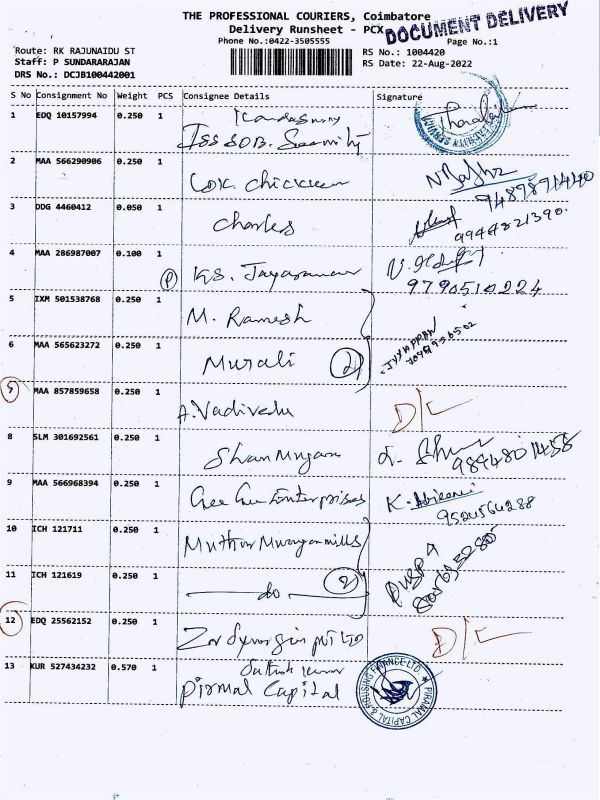 THE PROFESSIONAL COURIERS, Coimbatore
DOCUMENT DELIVERY
Delivery Runsheet - PCX
Phone No.:0422-3505555
Page No.:1
Route: RK RAJUNAIDU ST
RS No.: 1004420
Staff: P SUNDARARAJAN
RS Date: 22-Aug-2022
DRS No.: DCJB100442001
S No Consignment No Weight PCS Consignee Details Signature
1 EDQ 10157994 0.250 1
2 MAA 566290906 0.250 1
3 DDG 4460412 0.050 1 Charles
4 MAA 286987007 0.100 1 K.S. Jayaraman
9790510224
5 IXM 501538768 0.250 1 M. Ramesh
6 MAA 565623272 0.250 1 Murali 2
7 MAA 857859658 0.250 1 A. Vadivelu D/L
8 SLM 301692561 0.250 1 Shanmugam
9 MAA 566968394 0.250 1 Gee Gee Enterprises
9524564288
10 ICH 121711 0.250 1
11 ICH 121619 0.250 1 do 2
12 EDQ 25562152 0.250 1 D/L
13 KUR 527434232 0.570 1 Sathish Kumar
Pirmal Capital
PIRAMAL CAPITAL & HOUSING FINANCE LTD